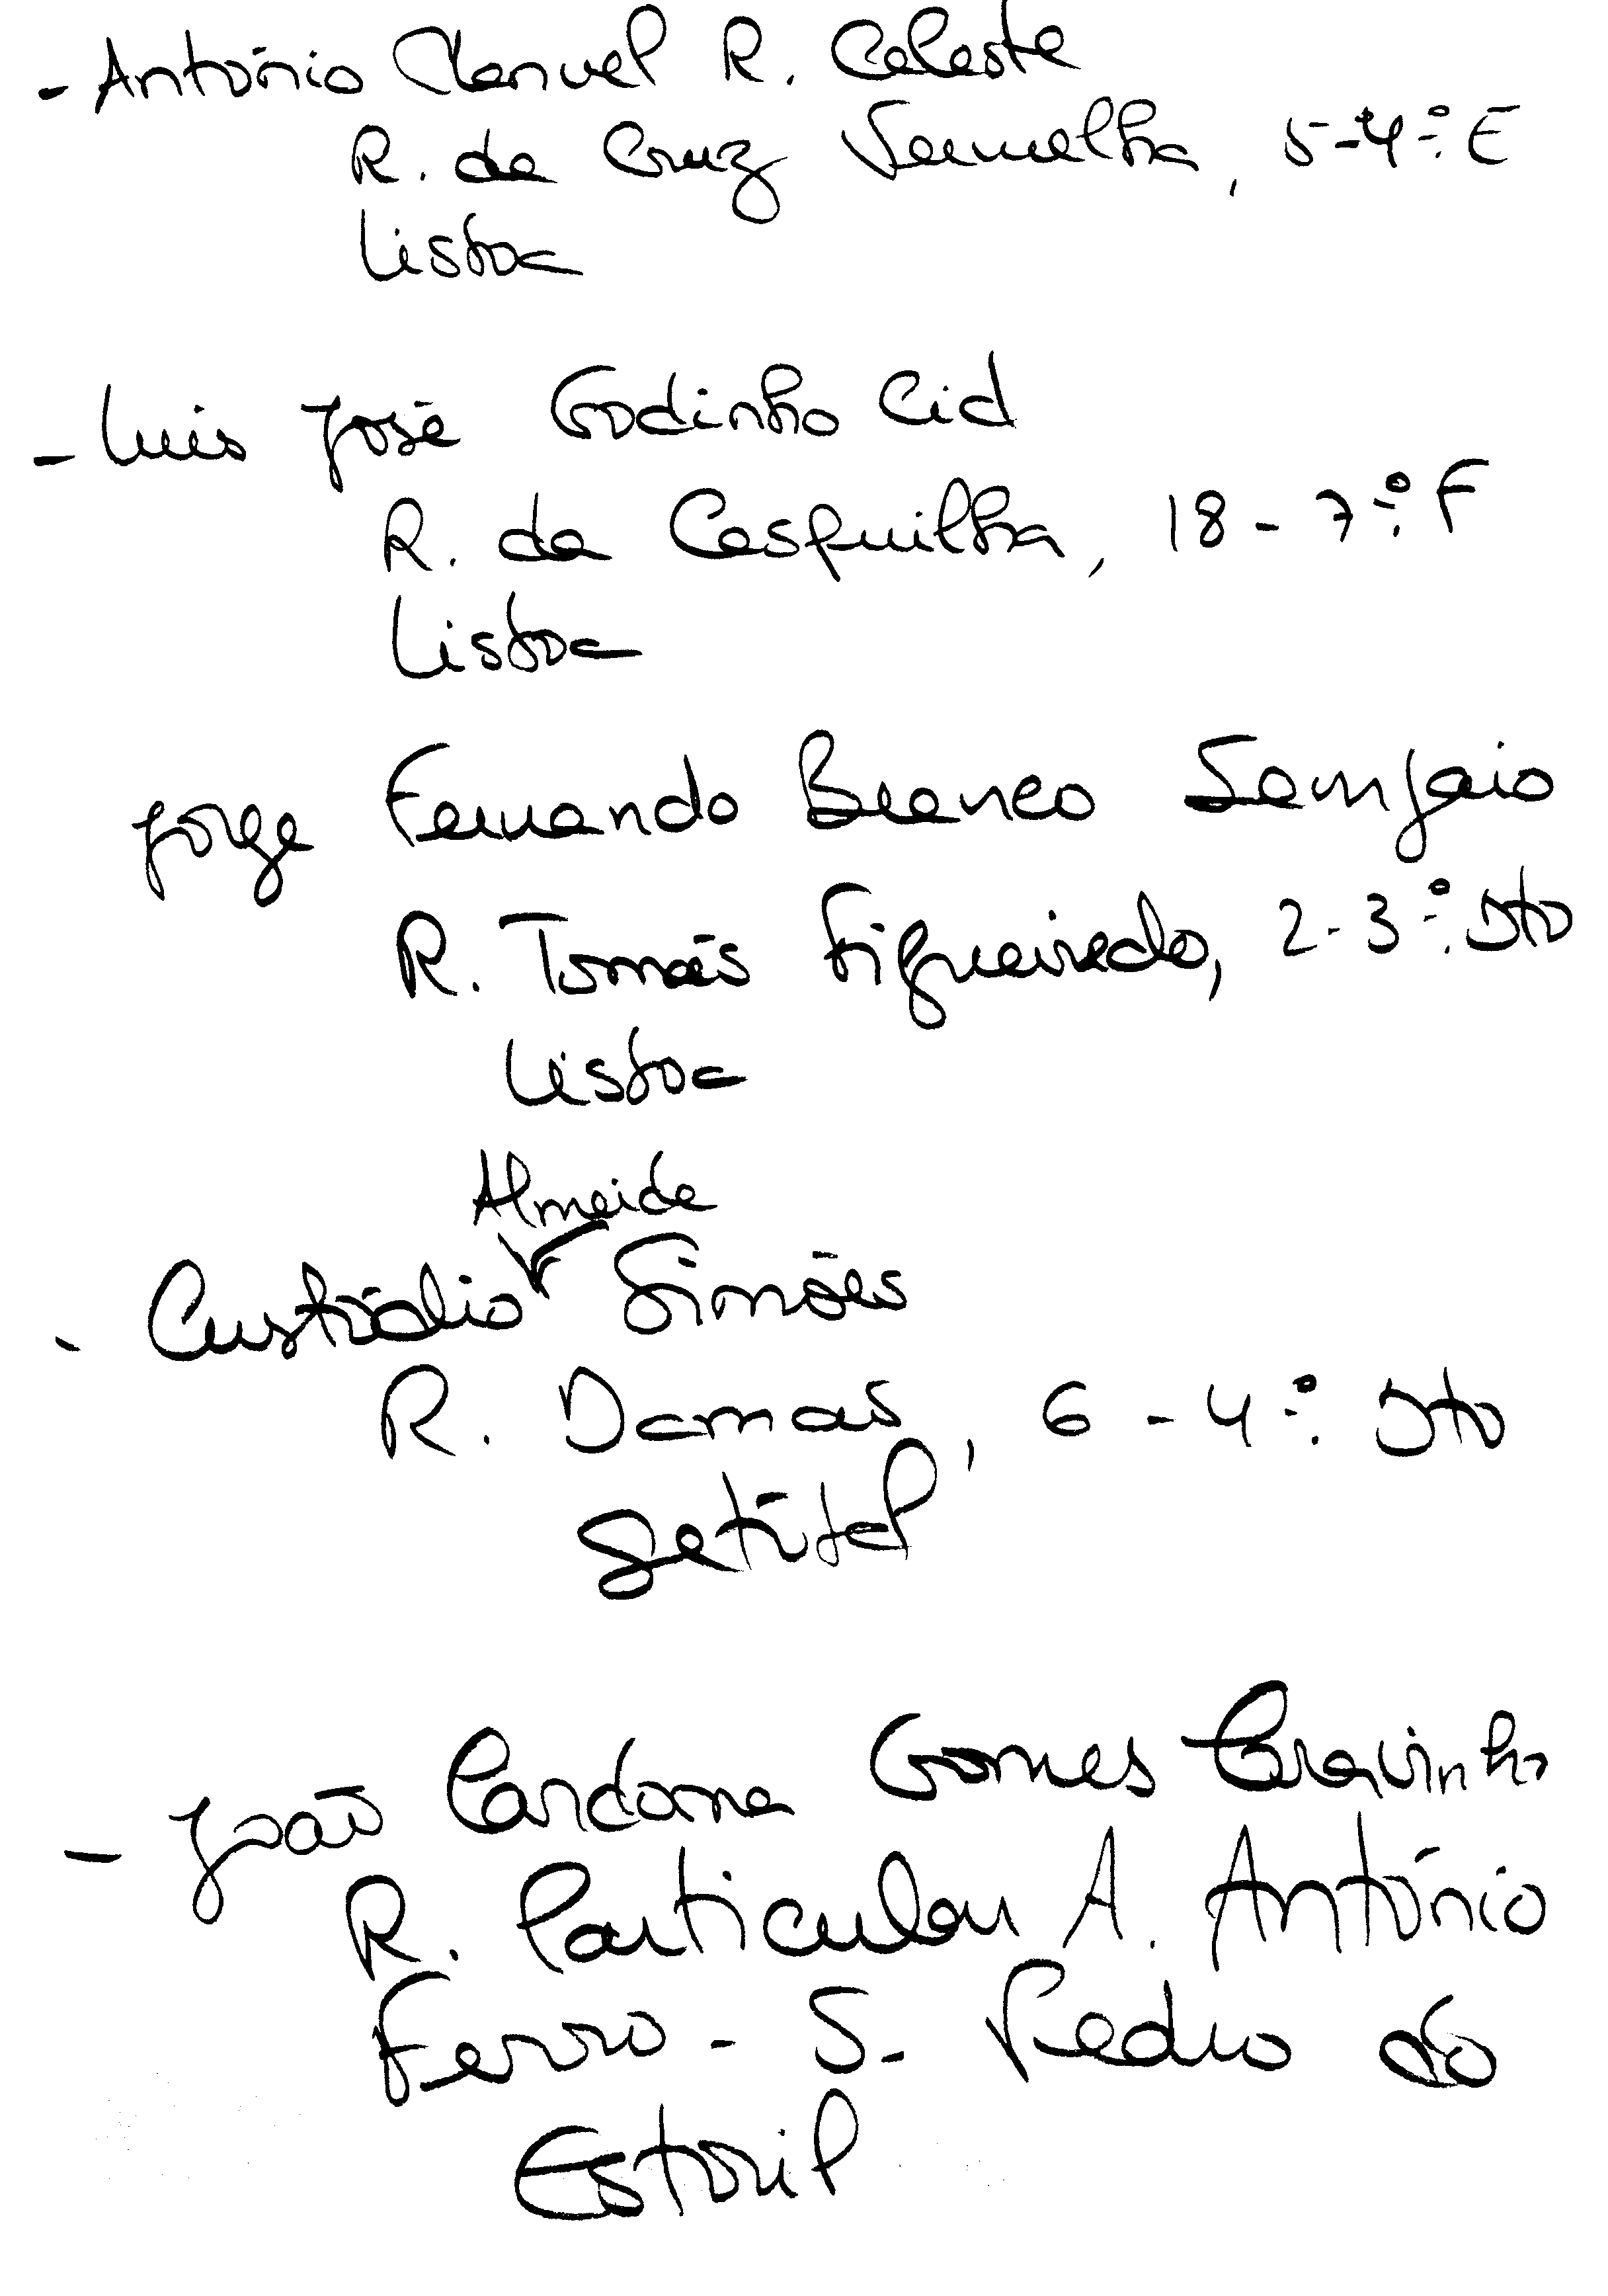 - António Manuel R. Celeste
R. da Cruz Vermelha, 5-4º E
Lisboa
- Luis José Godinho Cid
R. da Casquilha, 18 - 7º F
Lisboa
Jorge Fernando Branco Sampaio
R. Tomás Figueiredo, 2-3º Dto
Lisboa
Almeida
- Custódio Simões
R. Damas, 6 - 4º Dto
Setúbal
- João Cardona Gomes Cravinho
R. Particular A. António
Ferro - S. Pedro do
Estoril